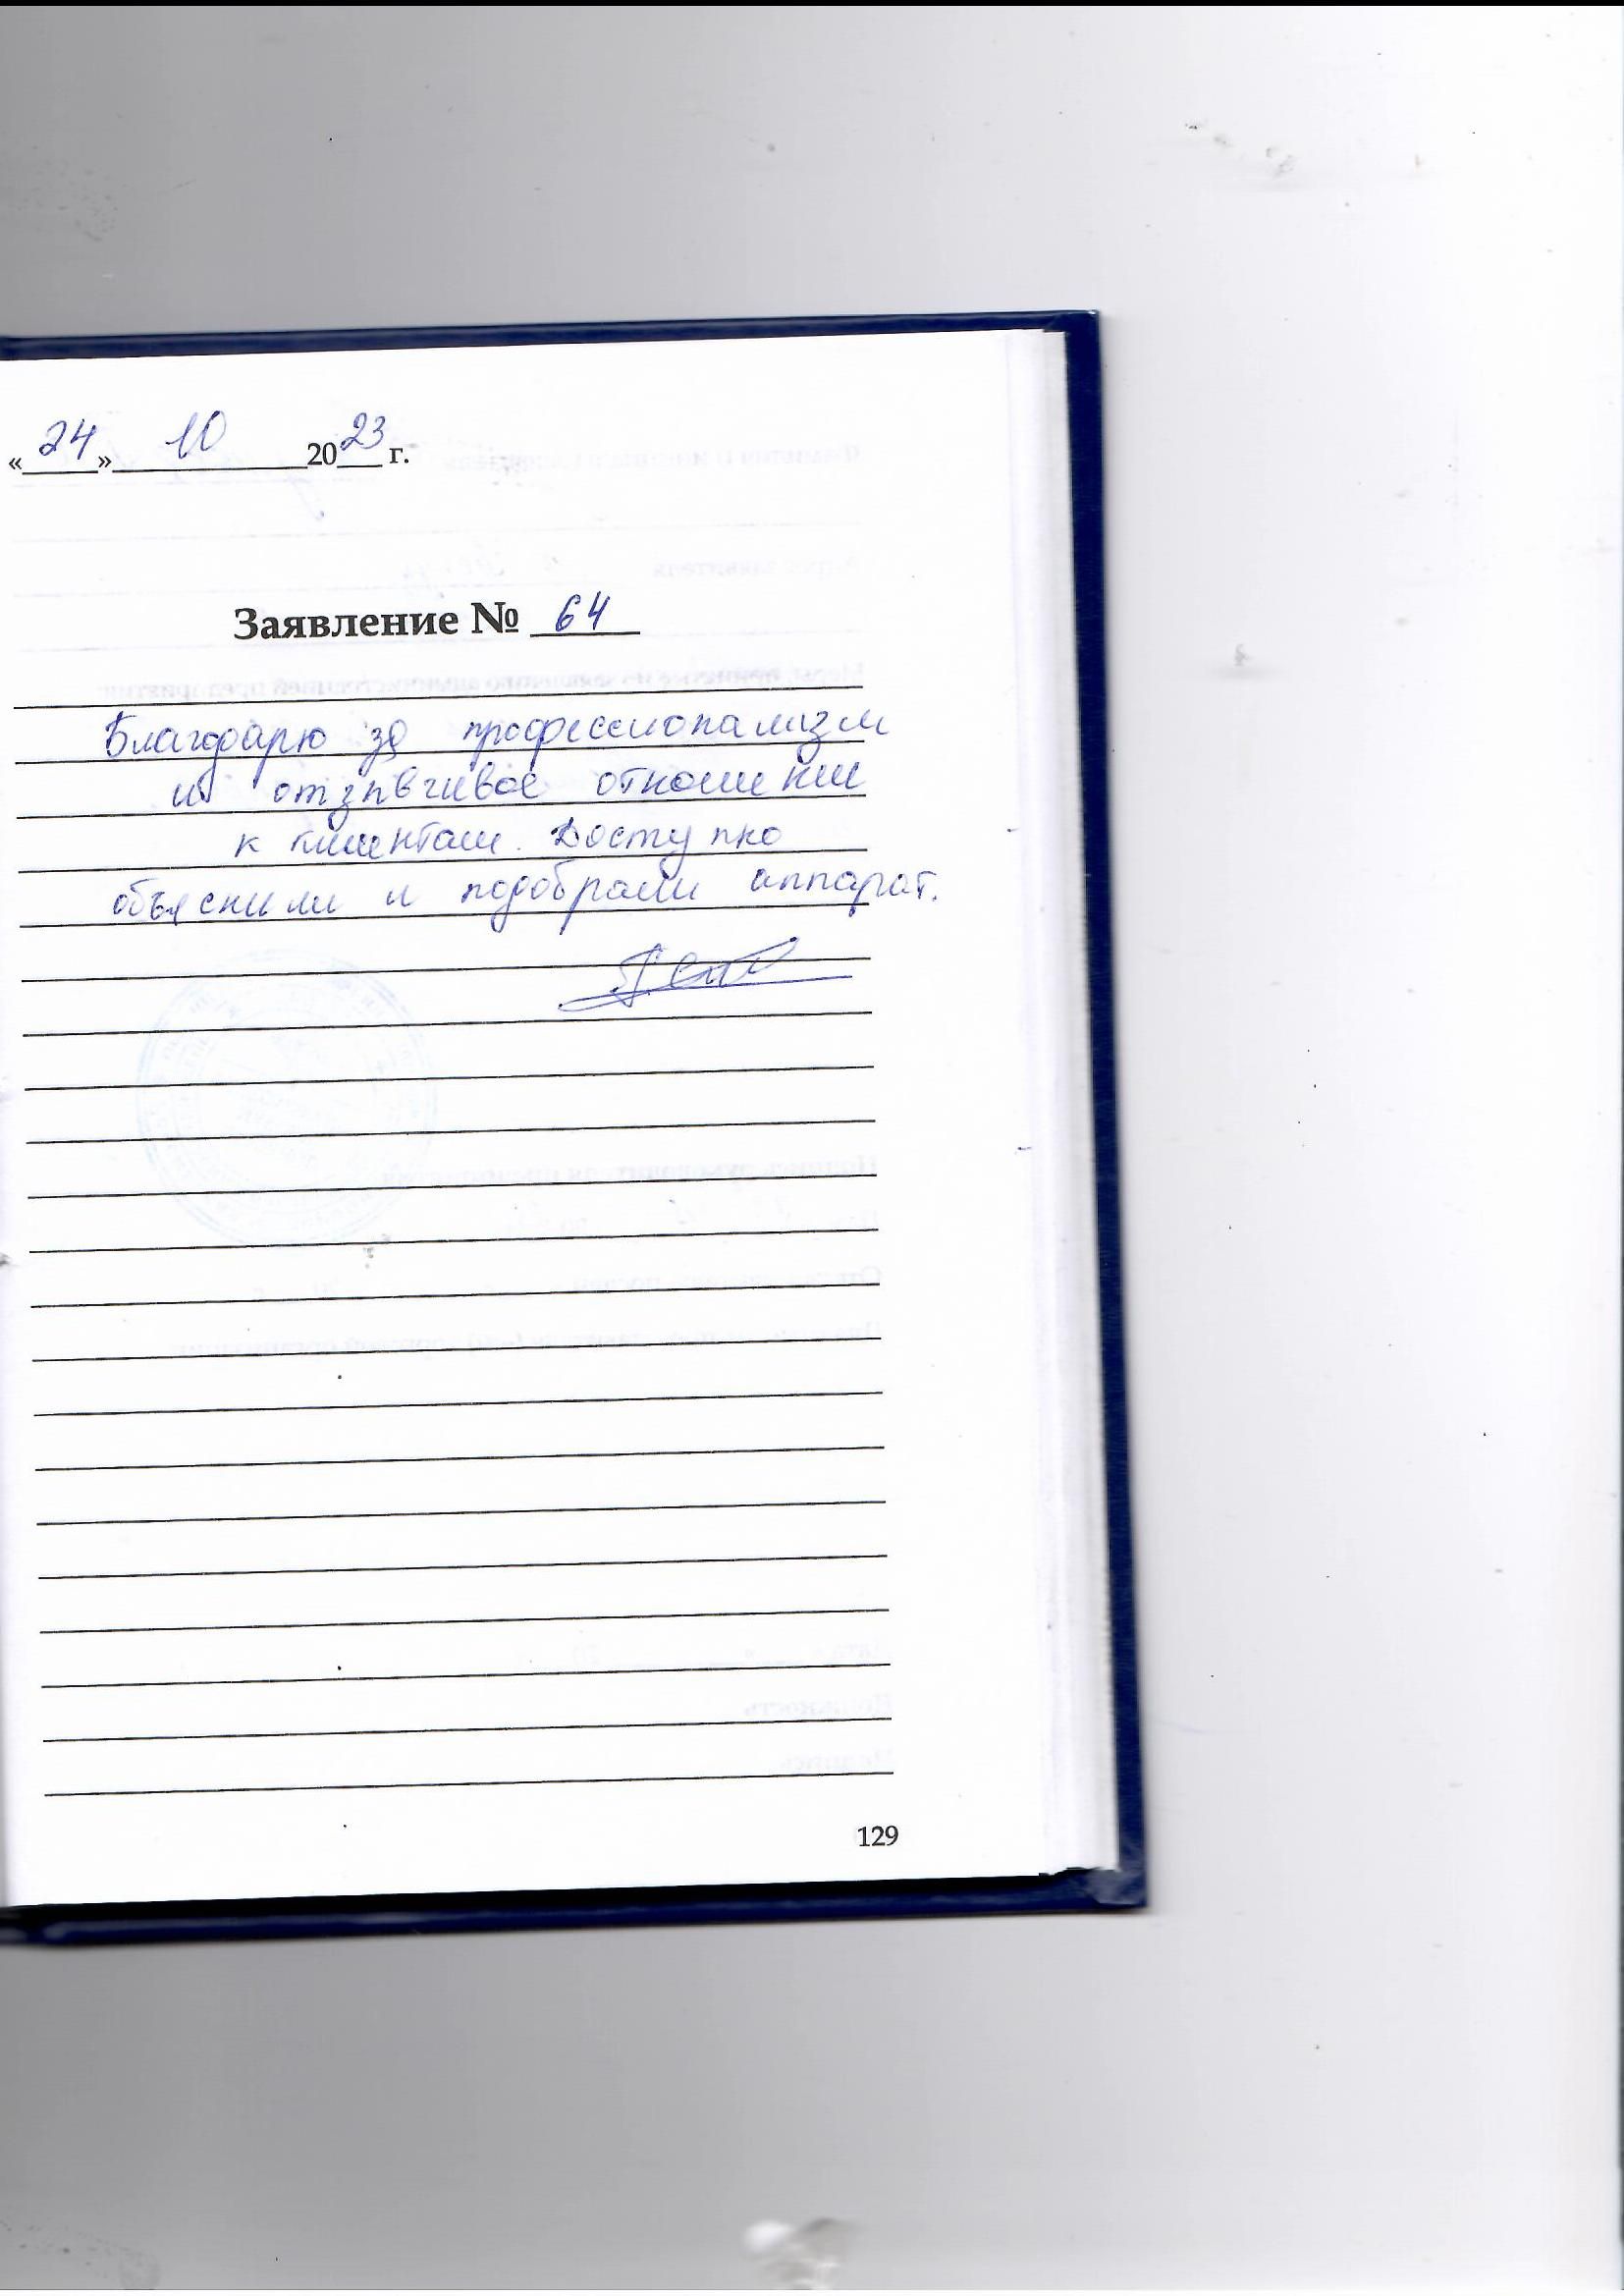 «24» 10 2023 г.
Заявление № 64
Благодарю за профессионализм
и отзывчивое отношении
к клиентам. Доступно
объяснили и подобрали аппарат.
129